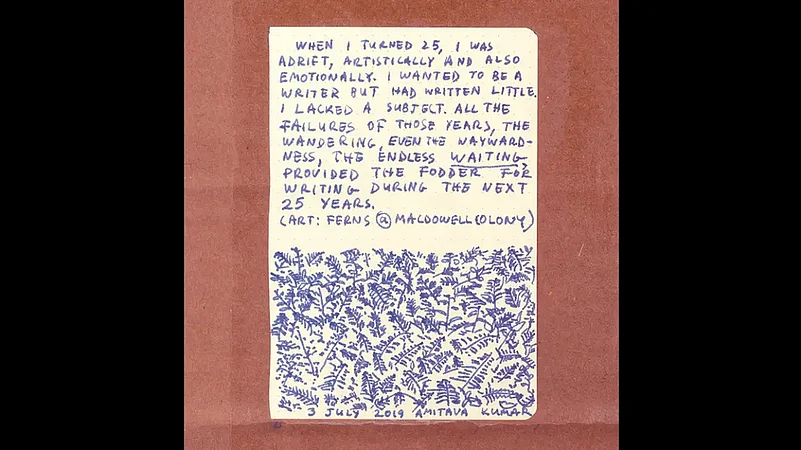 WHEN I TURNED 25, I WAS
ADRIFT, ARTISTICALLY AND ALSO
EMOTIONALLY. I WANTED TO BE A
WRITER BUT HAD WRITTEN LITTLE.
I LACKED A SUBJECT. ALL THE
FAILURES OF THOSE YEARS, THE
WANDERING, EVEN THE WAYWARD-
NESS, THE ENDLESS WAITING,
PROVIDED THE FODDER FOR
WRITING DURING THE NEXT
25 YEARS.
(ART: FERNS @ MACDOWELL COLONY)
3 JULY 2019 AMITAVA KUMAR